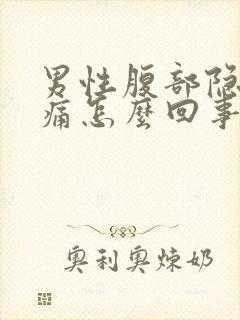 男性腹部隐
痛怎麼回事
奥利奥炼奶